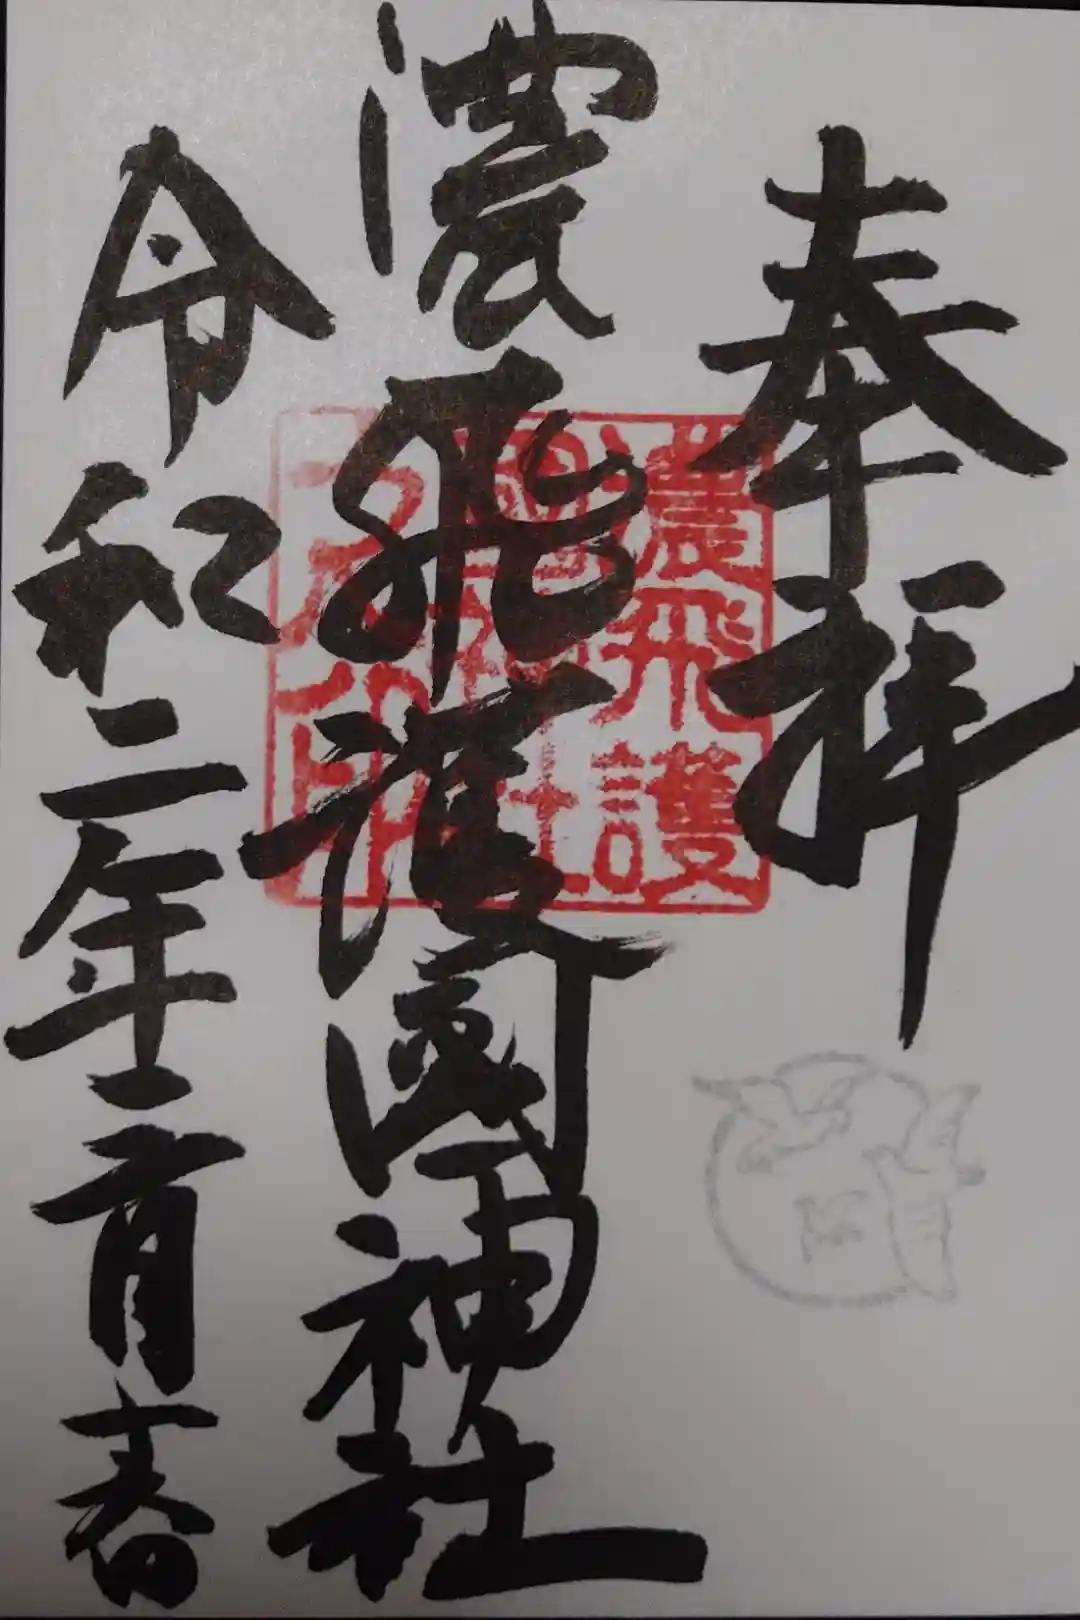 奉拝
濃飛護國神社
令和二年二月春
濃飛護
國神社